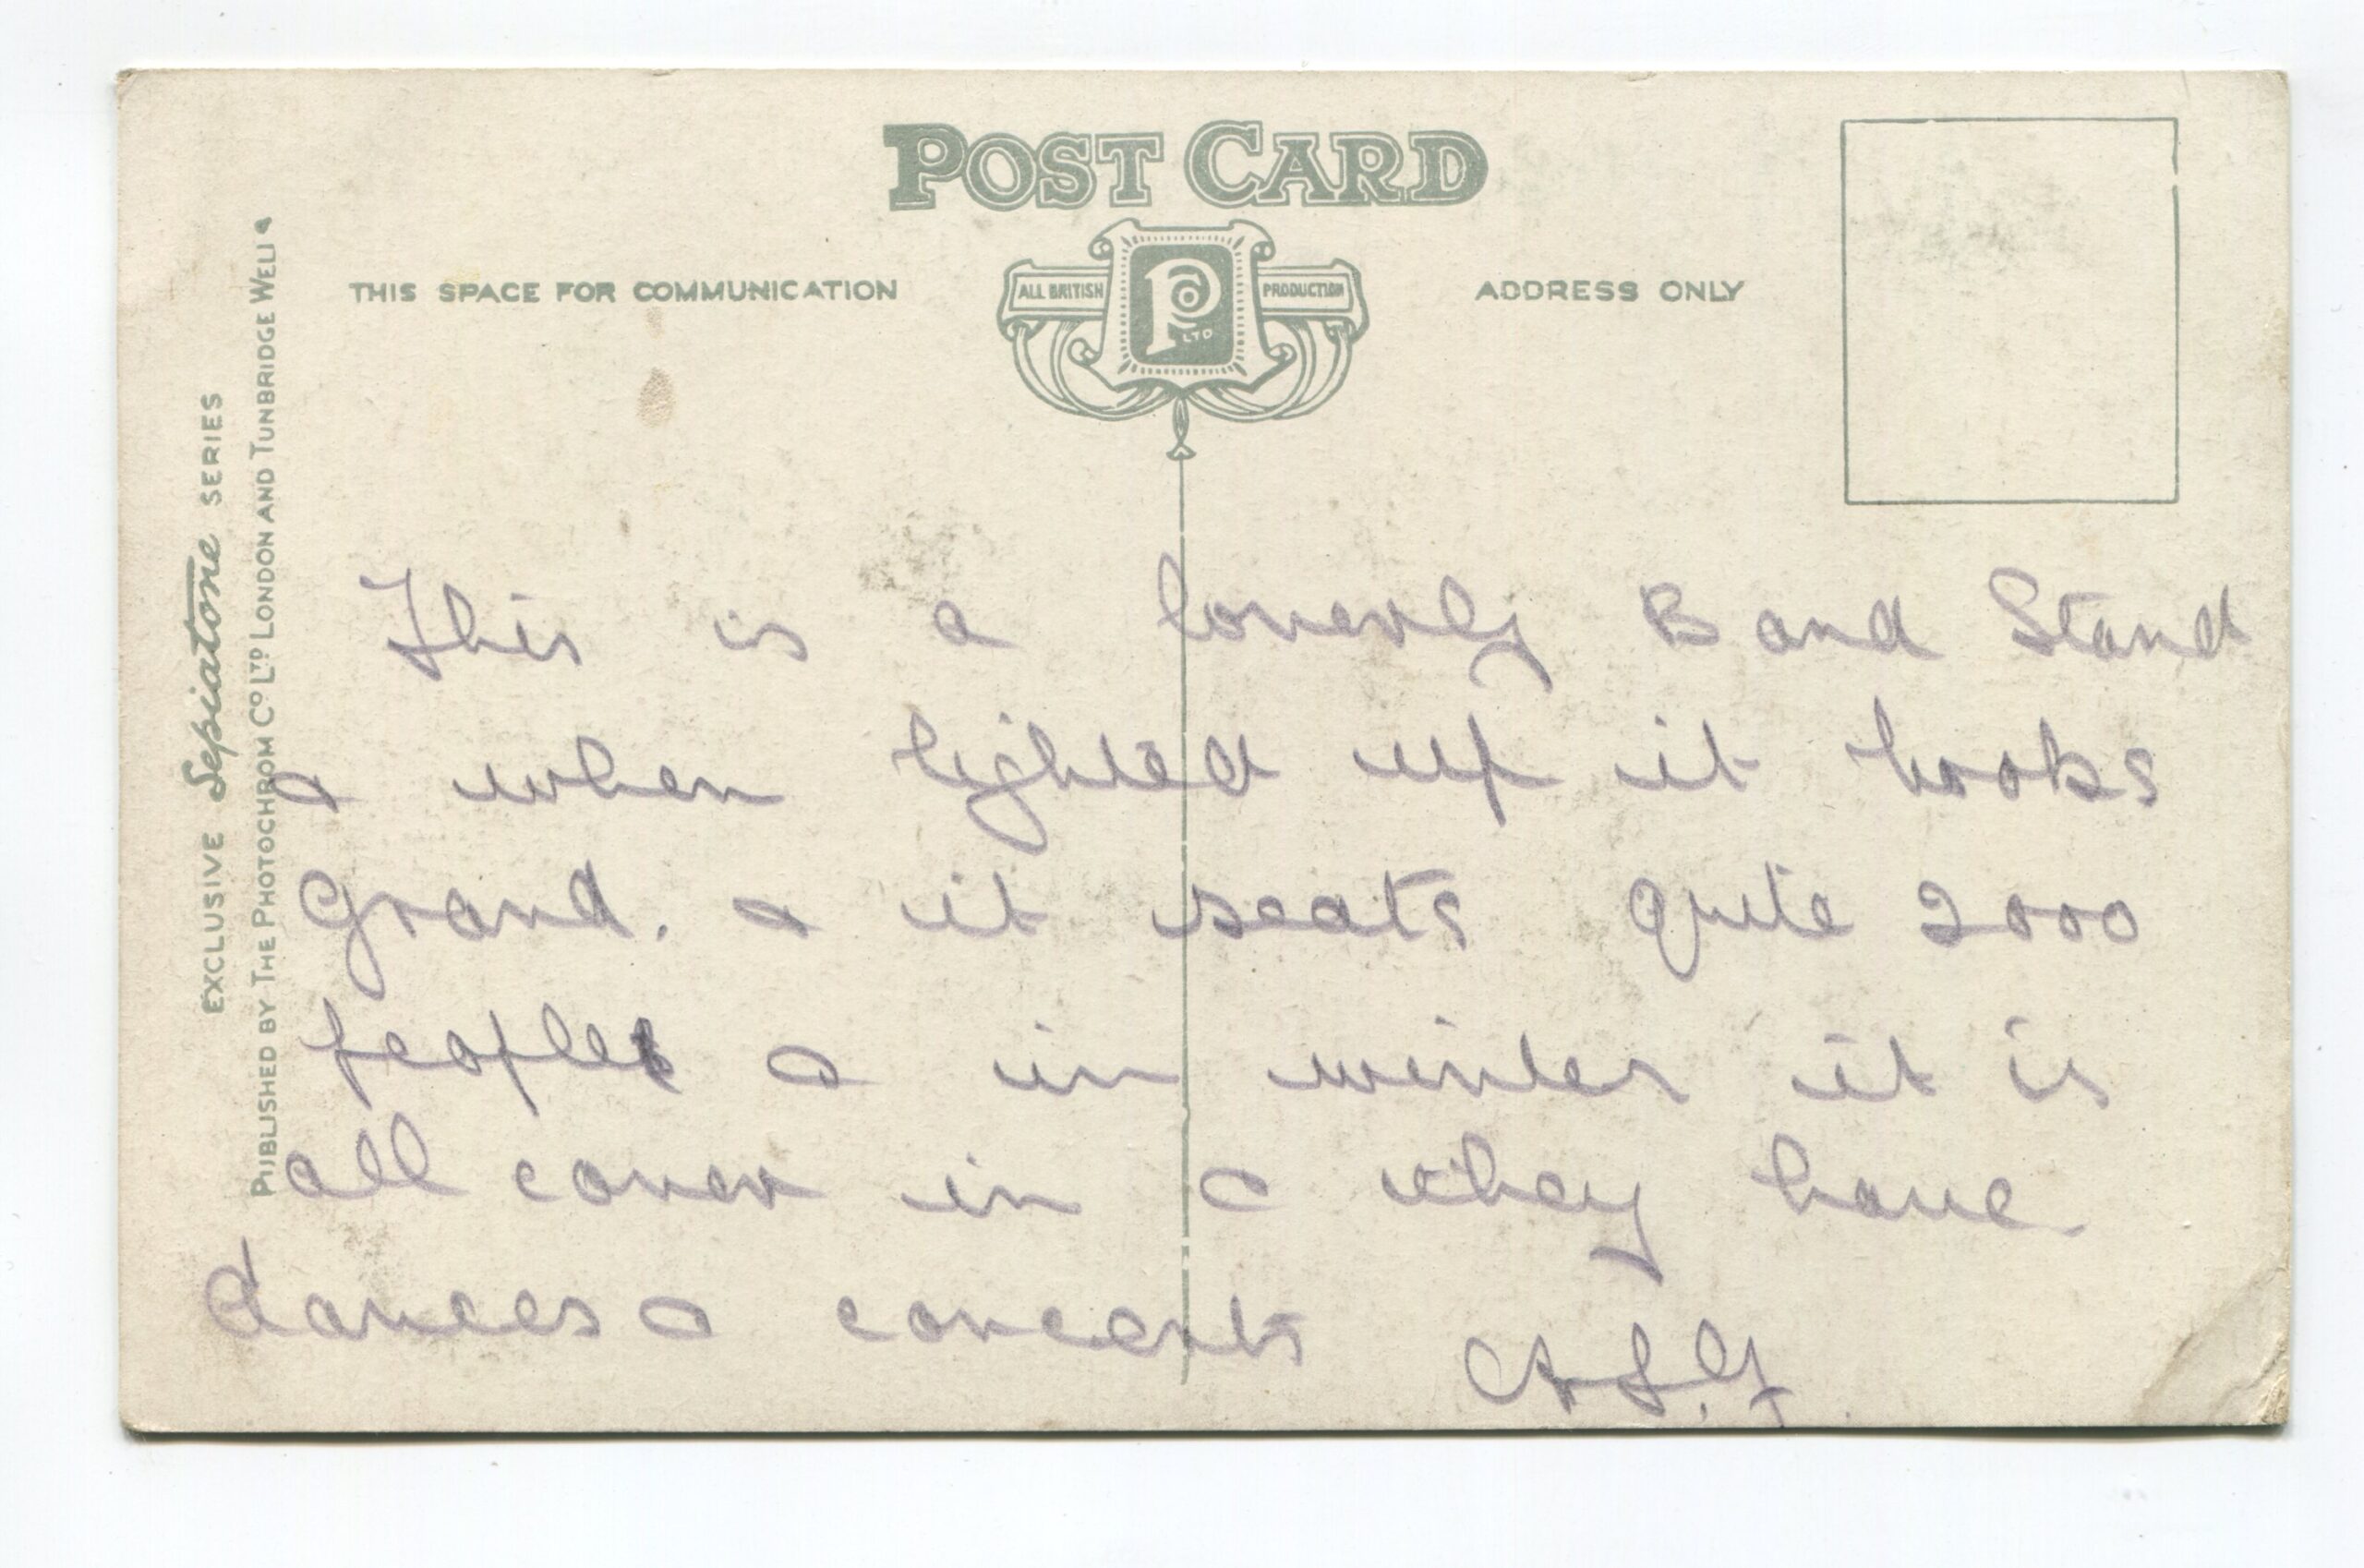 POST CARD
THIS SPACE FOR COMMUNICATION
ALL BRITISH
PRODUCTION
P Co LTD
ADDRESS ONLY
EXCLUSIVE Sepiatone SERIES
PUBLISHED BY THE PHOTOCHROM CO LTD LONDON AND TUNBRIDGE WELLS
This is a loverly Band Stand
& when lighted up it looks
Grand. & it seats quite 2000
people & in winter it is
all cover in & they have
dances & concerts